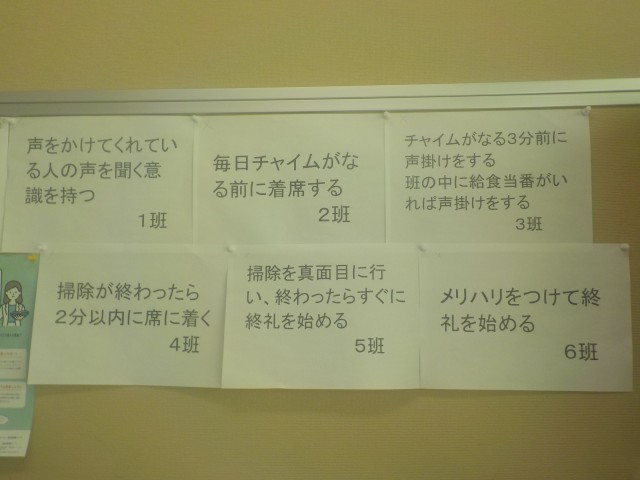 声をかけてくれてい
る人の声を聞く意
識を持つ
1班
毎日チャイムがな
る前に着席する
2班
チャイムがなる3分前に
声掛けをする
班の中に給食当番がい
れば声掛けをする
3班
掃除が終わったら
2分以内に席に着く
4班
掃除を真面目に行
い、終わったらすぐに
終礼を始める
5班
メリハリをつけて終
礼を始める
6班